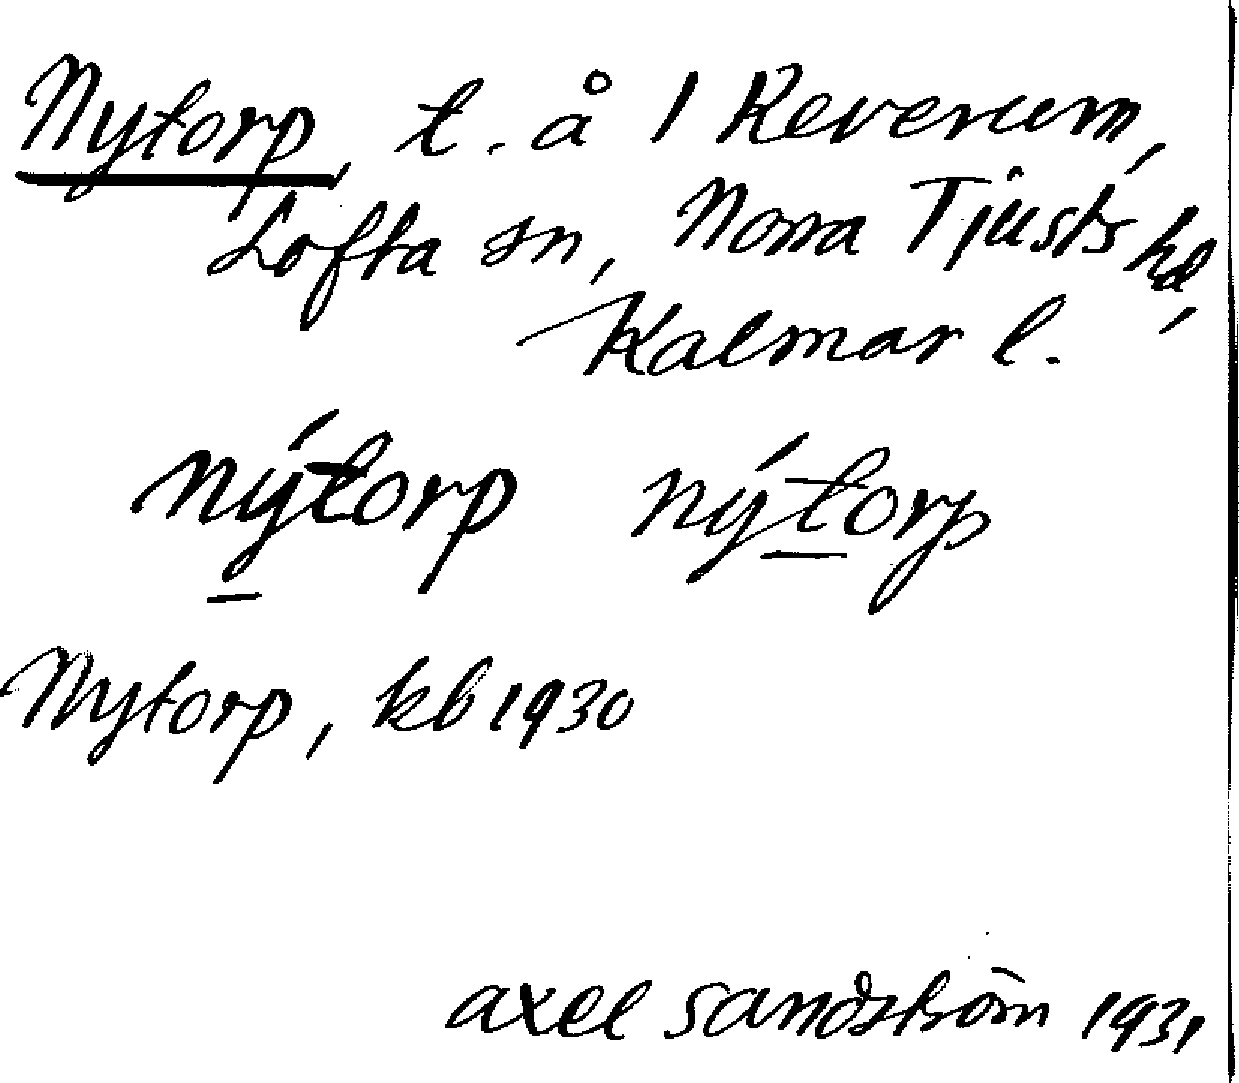 Nytorp, t. å 1 Reverum,
Lofta sn, Norra Tjusts hd,
Kalmar l.
nýtorp nýtorp
Nytorp, kb 1930
axel sandström 1931